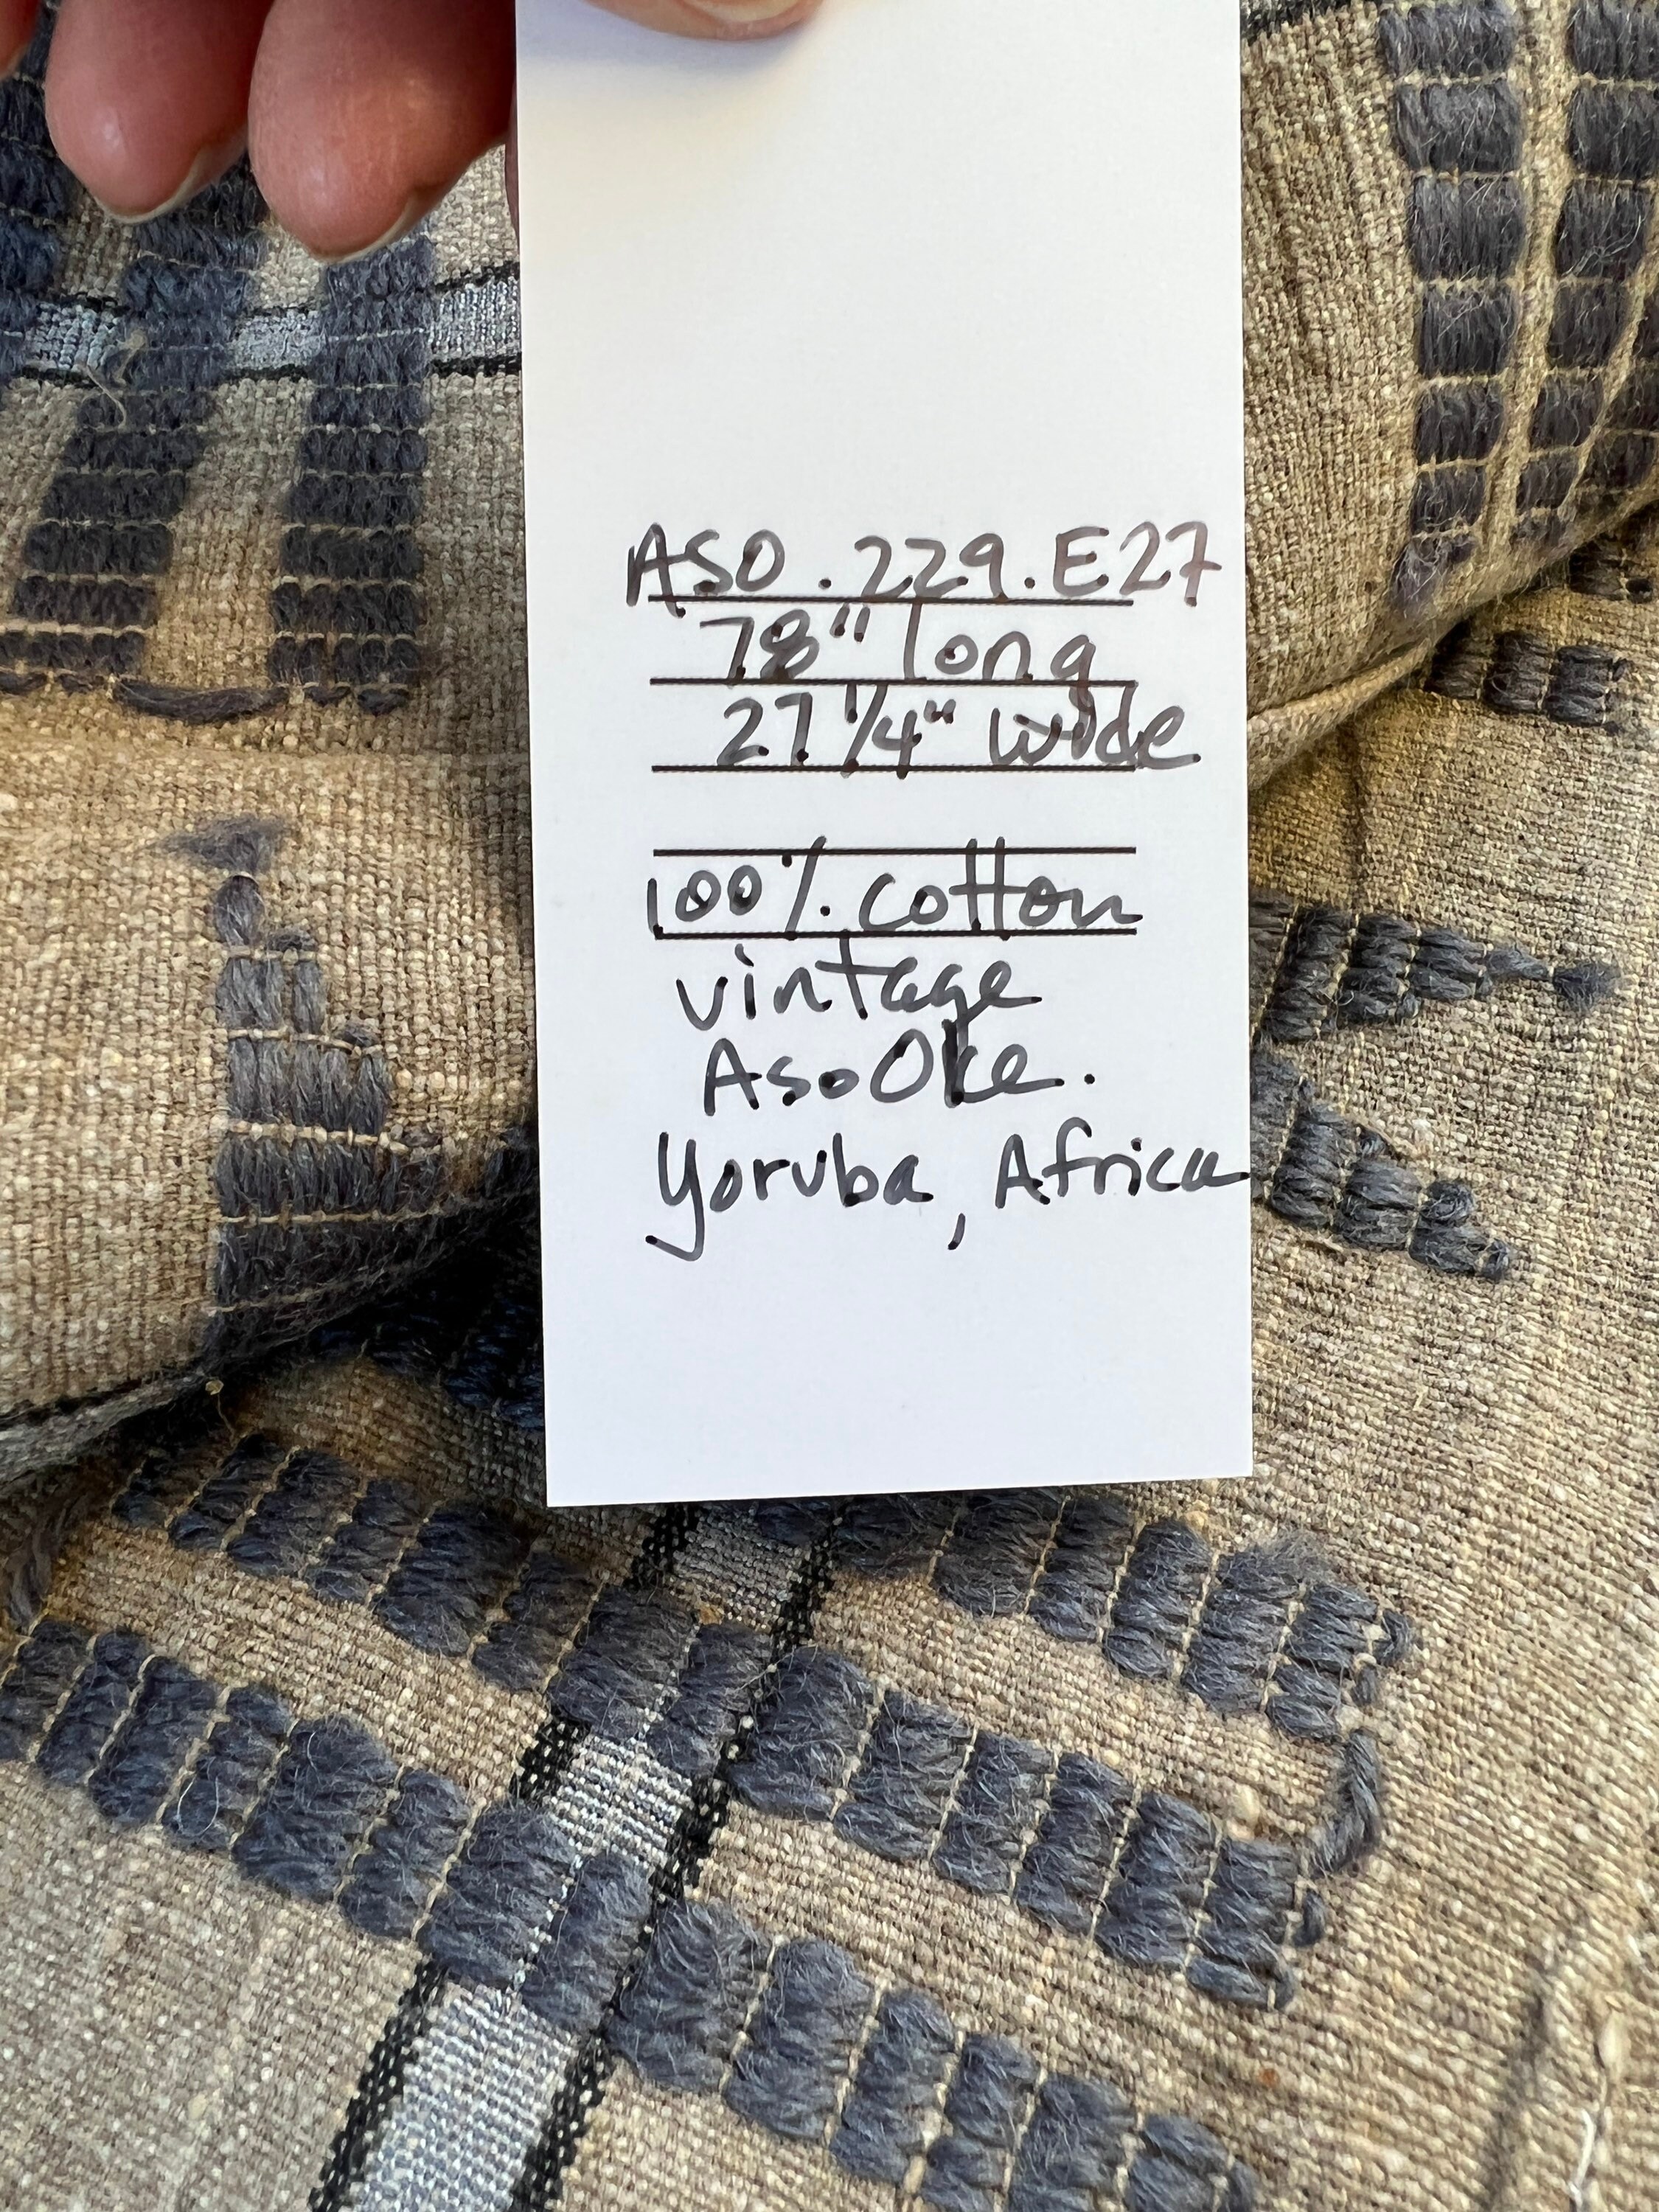 ASO.229.E27
78" long
27 1/4" wide
100% cotton
vintage
Aso Oke.
Yoruba, Africa